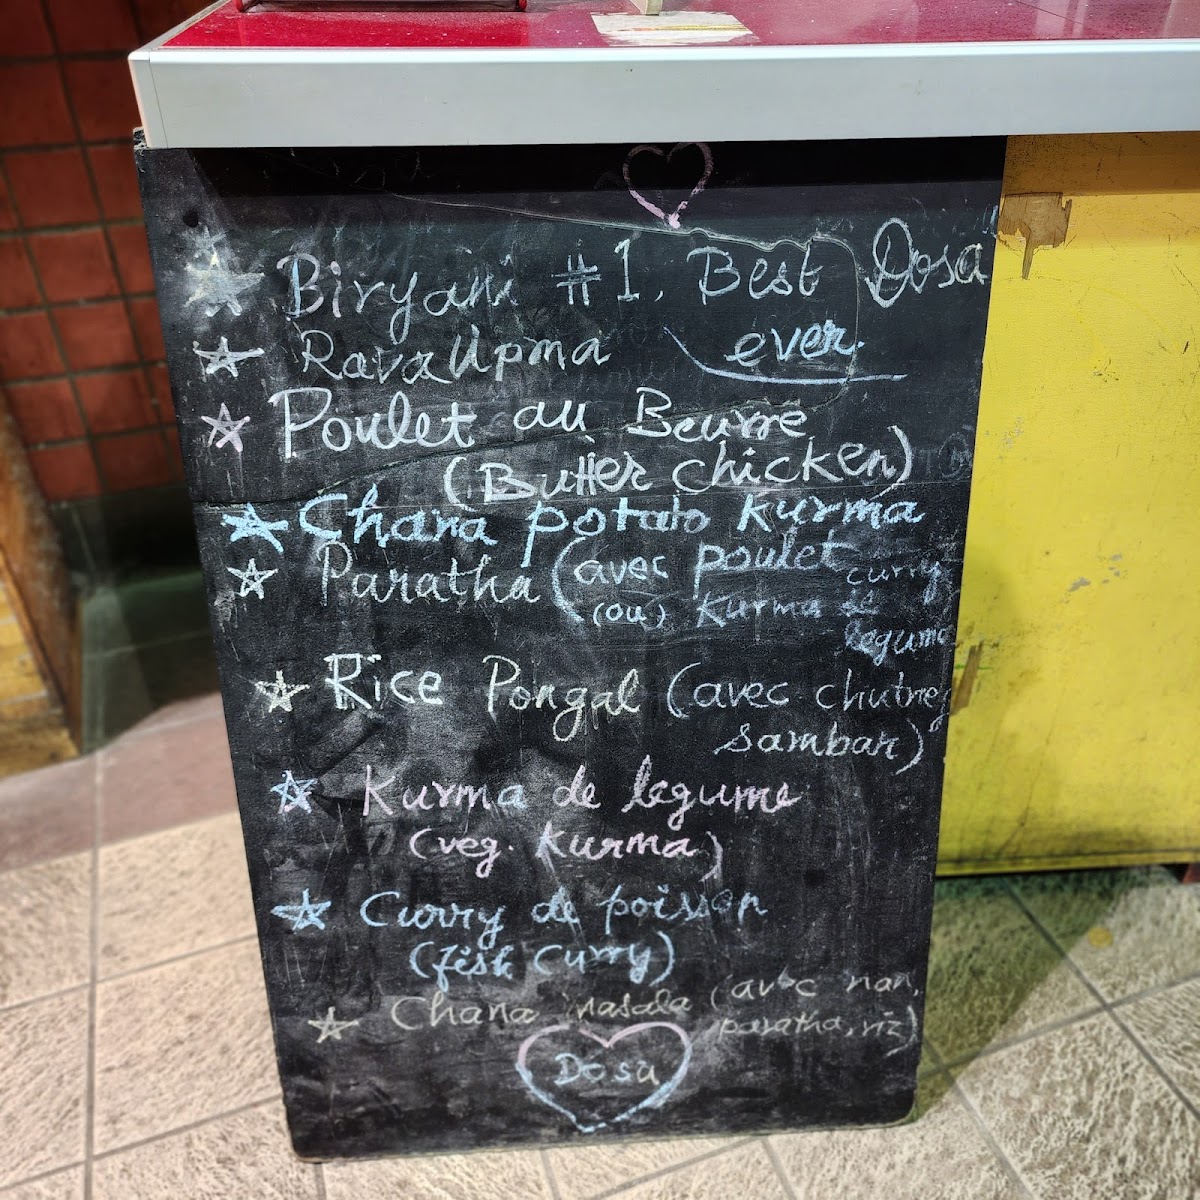 Biryani #1, Best Dosa
ever.
Rava Upma
Poulet au Beurre
(Butter chicken)
Chana potato Kurma
Paratha (avec poulet curry
(ou) Kurma de
legume
Rice Pongal (avec chutney
sambar)
Kurma de legume
(veg. Kurma)
Curry de poisson
(fish curry)
Chana masala (avec nan,
paratha, riz)
Dosa